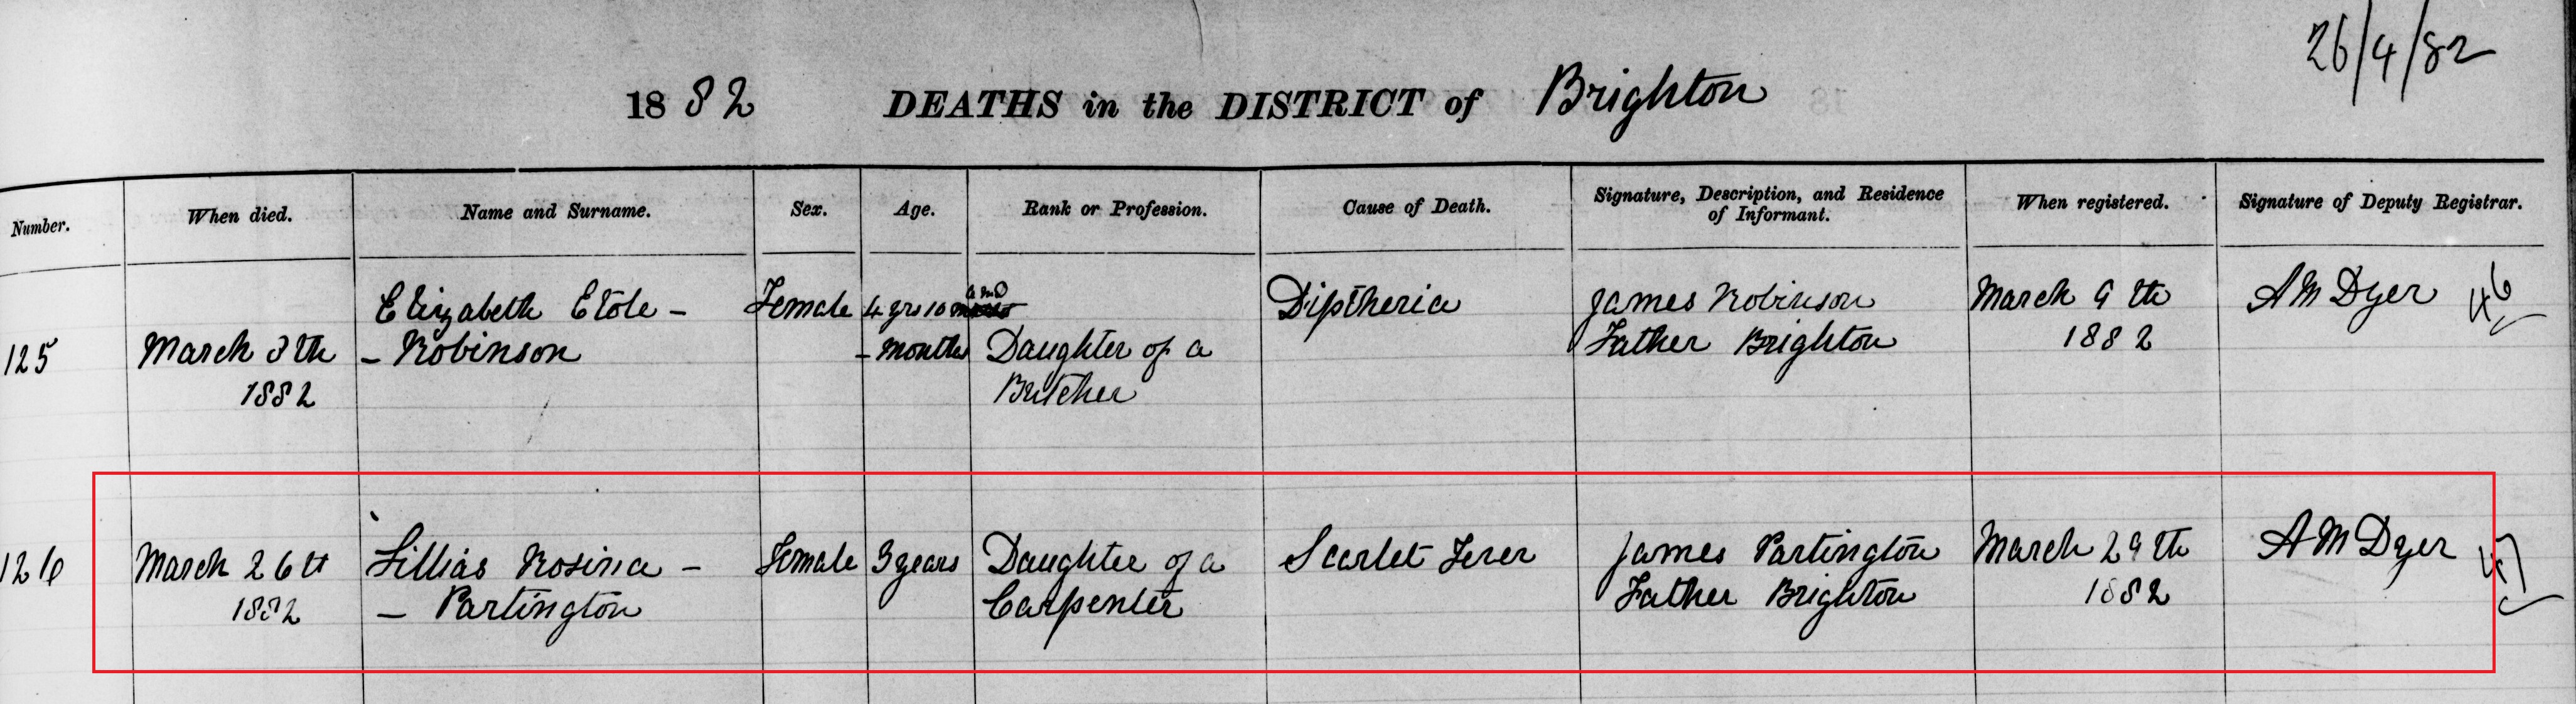 26/4/82
1882 DEATHS in the DISTRICT of Brighton
Number.
When died.
Name and Surname.
Sex.
Age.
Rank or Profession.
Cause of Death.
Signature, Description, and Residence
of Informant.
When registered.
Signature of Deputy Registrar.
125
March 8th
1882
Elizabeth Etole -
- Robinson
Female
4 yrs 10
- months
AMD
Daughter of a
Butcher
Diptheria
James Robinson
Father Brighton
March 9th
1882
AM Dyer
46
126
March 26th
1882
Lillias Rosina -
- Partington
Female
3 years
Daughter of a
Carpenter
Scarlet Fever
James Partington
Father Brighton
March 29th
1882
AM Dyer
47